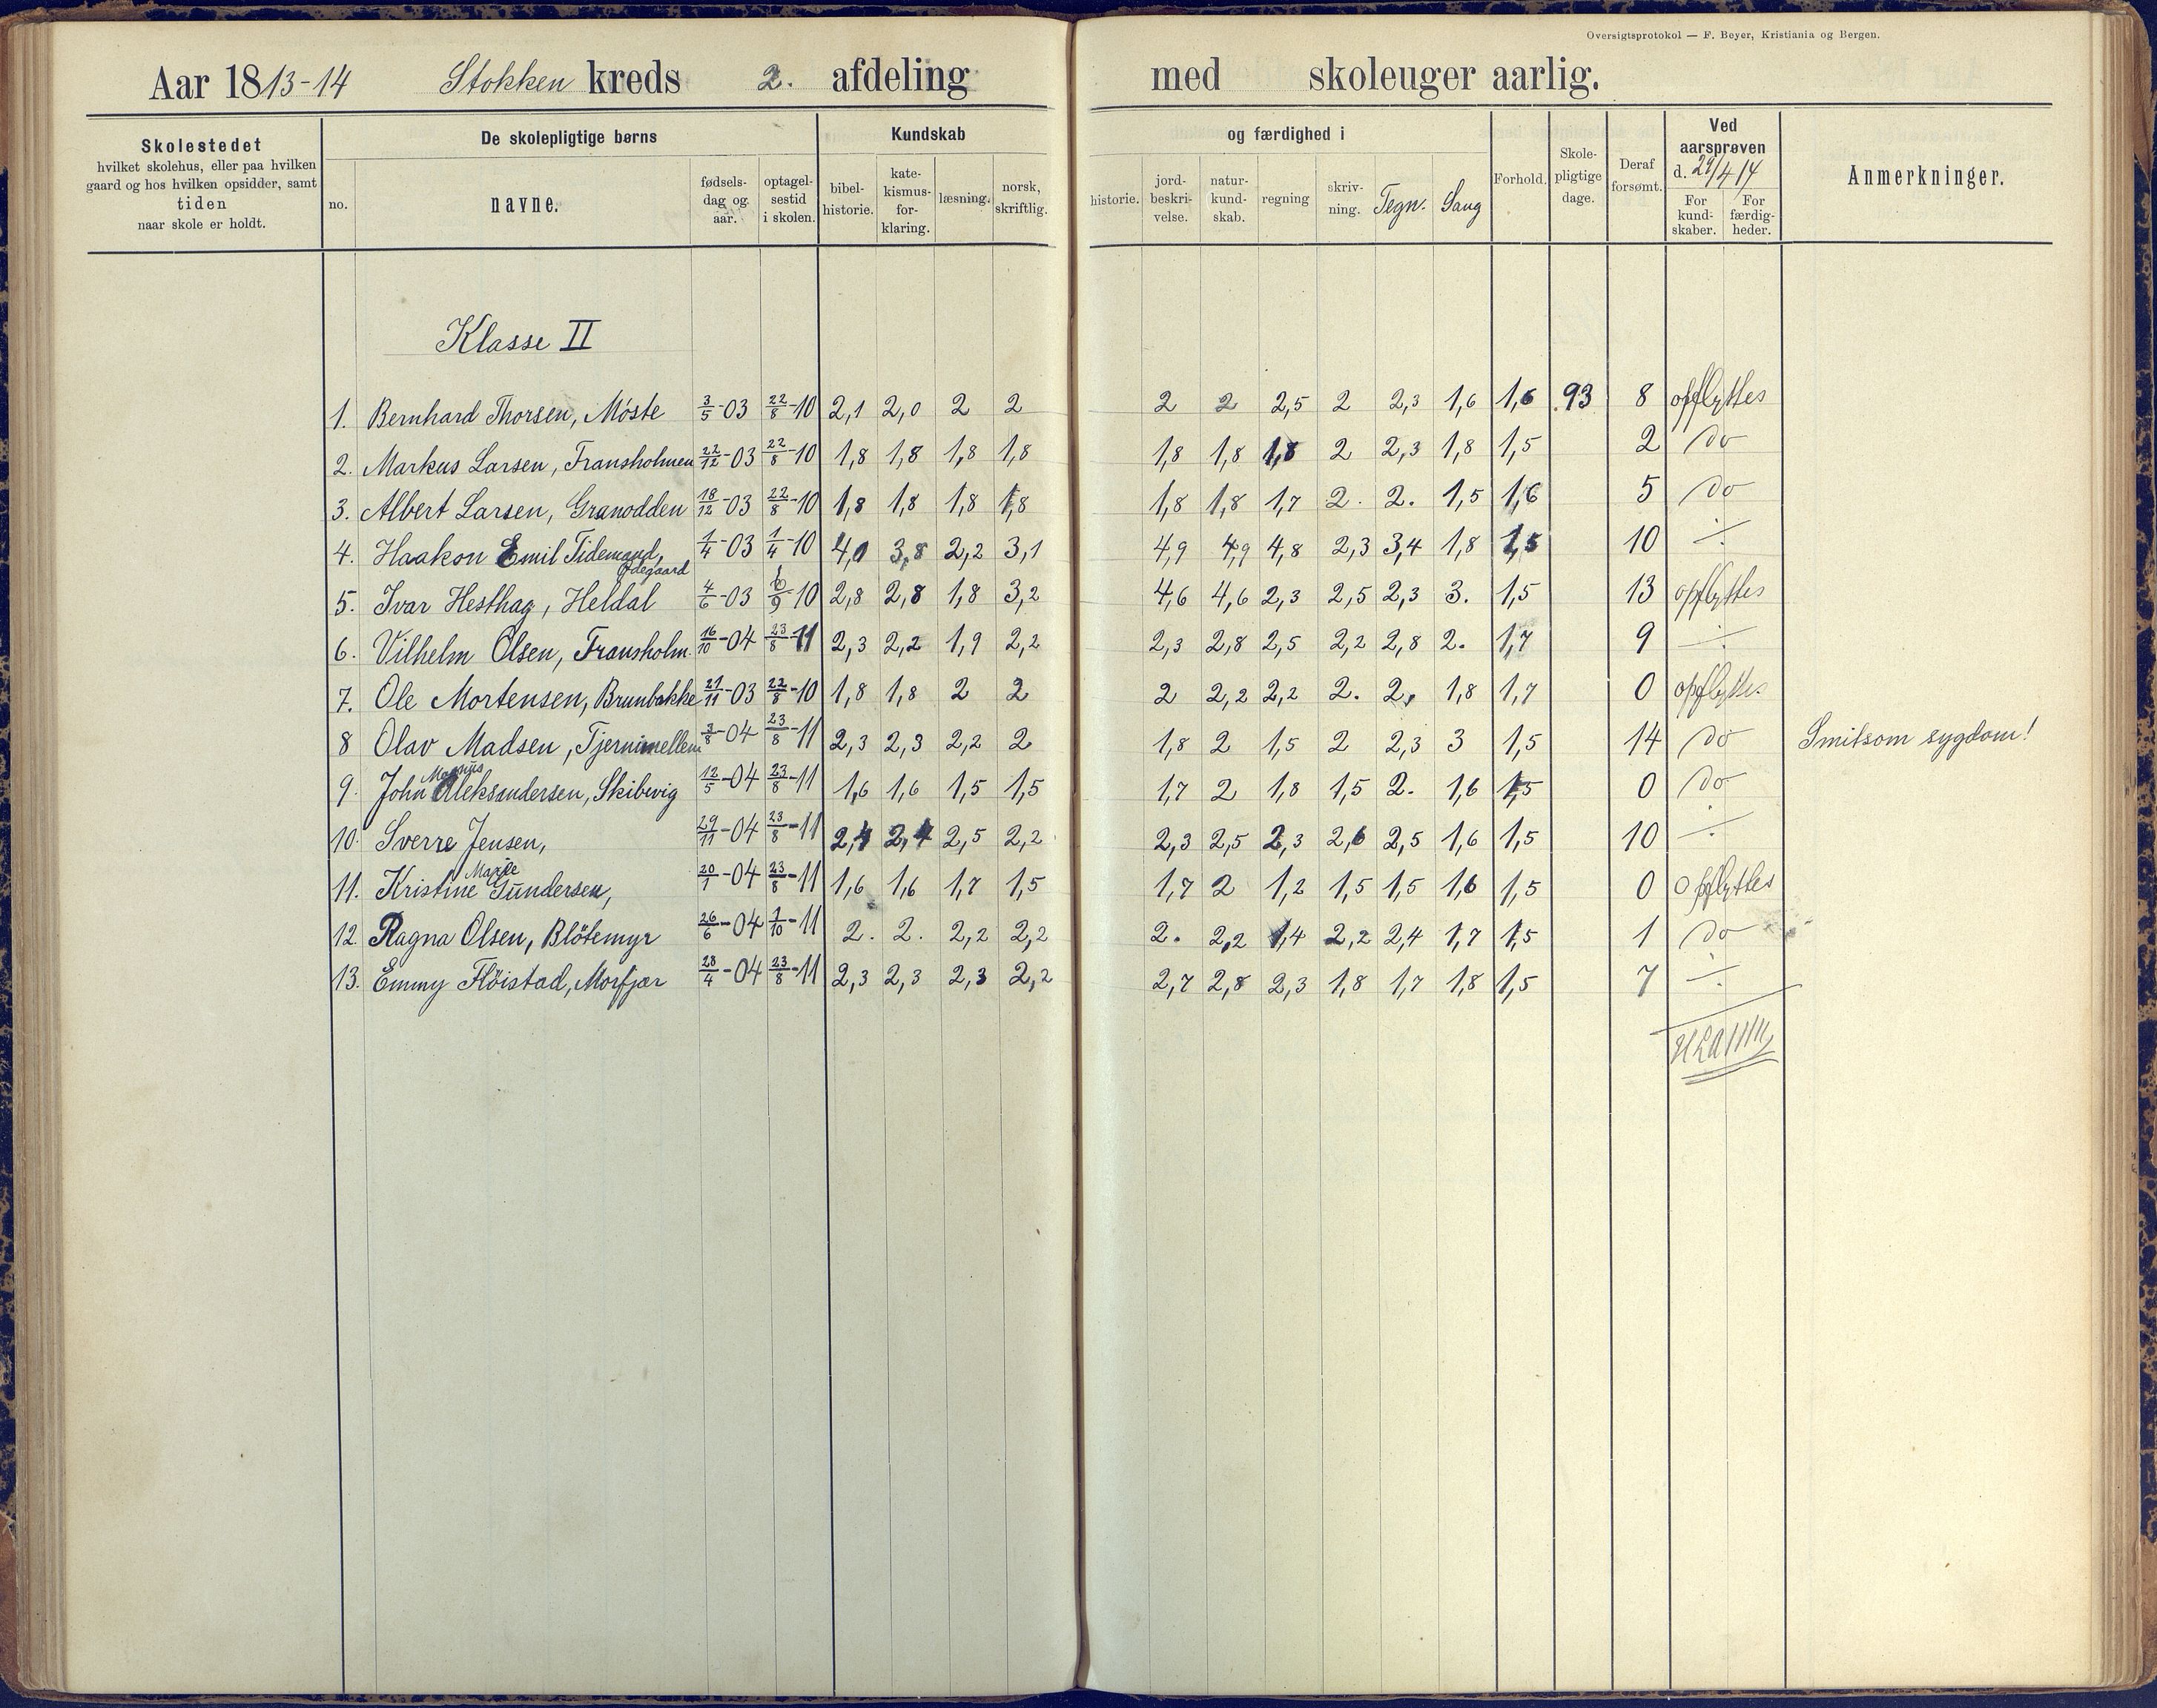 Oversigtsprotokol — F. Beyer, Kristiania og Bergen.
Aar 1813-14 Stokken kreds 2. afdeling med skoleuger aarlig.
Skolestedet
hvilket skolehus, eller paa hvilken
gaard og hos hvilken opsidder, samt
tiden
naar skole er holdt.
De skolepligtige børns
no.
navne.
fødsels-
dag og
aar.
optagel-
sestid
i skolen.
Kundskab
bibel-
historie.
kate-
kismus-
for-
klaring.
læsning.
norsk,
skriftlig.
og færdighed i
historie.
jord-
beskri-
velse.
natur-
kund-
skab.
regning
skriv-
ning.
Tegn.
Sang
Forhold.
Skole-
pligtige
dage.
Deraf
forsømt.
Ved
aarsprøven
d. 29/4 14
For
kund-
skaber.
For
færdig-
heder.
Anmerkninger.
Klasse II
1. Bernhard Thorsen, Möste 3/5-03 22/8-10 2,1 2,0 2 2 2 2 2,5 2 2,3 1,6 1,6 93 8 opflyttes
2. Markus Larsen, Fransholmen 22/12-03 22/8-10 1,8 1,8 1,8 1,8 1,8 1,8 1,8 2 2,3 1,8 1,5 2 do
3. Albert Larsen, Granodden 18/12-03 22/8-10 1,8 1,8 1,8 1,8 1,8 1,8 1,7 2. 2. 1,5 1,6 5 do
4. Haakon Emil Tidemand, Ødegaard 1/4-03 1/4-10 4,0 3,8 2,2 3,1 4,9 4,9 4,8 2,3 3,4 1,8 1,5 10 ÷
5. Ivar Hesthag, Heldal 4/6-03 6/9-10 2,8 2,8 1,8 3,2 4,6 4,6 2,3 2,5 2,3 3. 1,5 13 opflyttes
6. Vilhelm Olsen, Fransholm. 16/10-04 23/8-11 2,3 2,2 1,9 2,2 2,3 2,8 2,5 2,2 2,8 2. 1,7 9 ÷
7. Ole Mortensen, Brunbakke 21/11-03 22/8-10 1,8 1,8 2 2 2 2,2 2,2 2. 2. 1,8 1,7 0 opflyttes
8 Olav Madsen, Tjernimellem 3/8-04 23/8-11 2,3 2,3 2,2 2 1,8 2 1,5 2 2,3 3 1,5 14 do Smitsom sygdom!
9. John Magnus Aleksandersen, Skibvig 12/5-04 23/8-11 1,6 1,6 1,5 1,5 1,7 2 1,8 1,5 2. 1,6 1,5 0 do
10. Sverre Jensen, 29/11-04 23/8-11 2,4 2,4 2,5 2,2 2,3 2,5 2,3 2,6 2,5 1,6 1,5 10 ÷
11. Kristine Marie Gundersen, 20/1-04 23/8-11 1,6 1,6 1,7 1,5 1,7 2 1,2 1,5 1,5 1,6 1,5 0 Opflyttes
12. Ragna Olsen, Blötemyr 26/6-04 7/10-11 2. 2. 2,2 2,2 2. 2,2 1,4 2,2 2,4 1,7 1,5 1 do
13. Emmy Flöistad, Morfjær 28/4-04 23/8-11 2,3 2,3 2,3 2,2 2,7 2,8 2,3 1,8 1,7 1,8 1,5 7 ÷